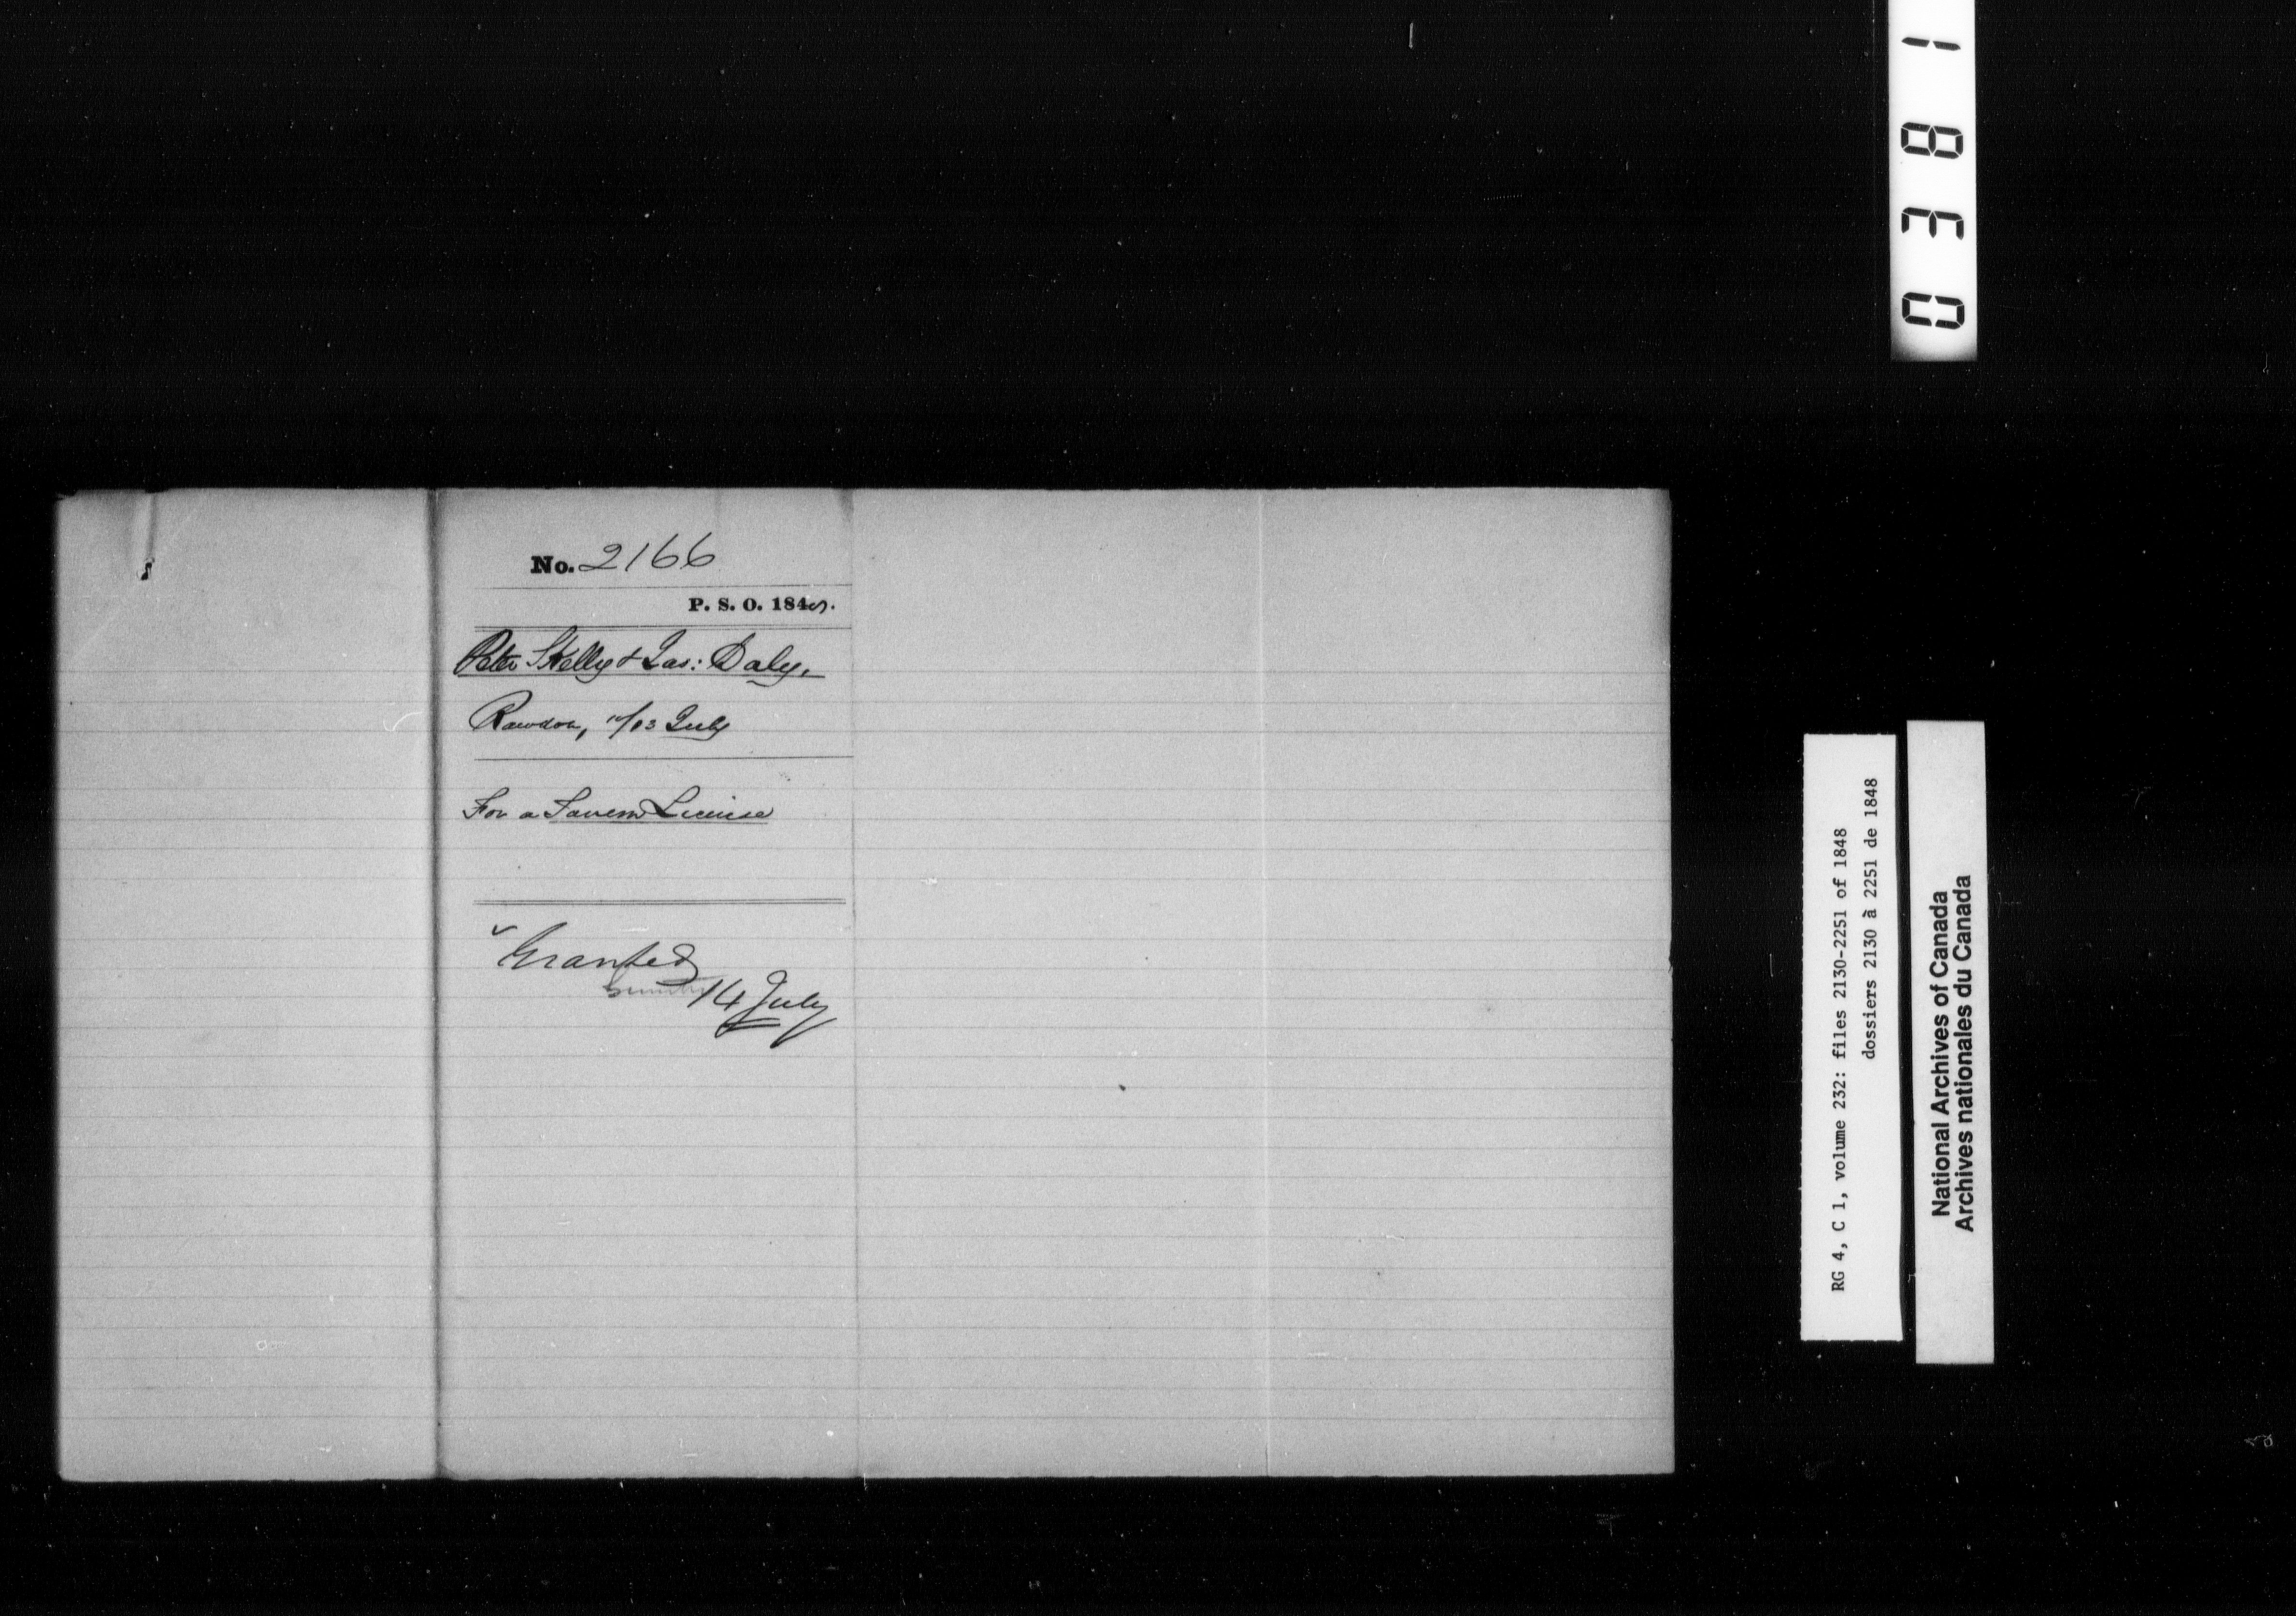 No. 2166
P. S. O. 1848.
Peter Skelly & Jas: Daly.
Rawdon, 10/13 July
For a Tavern License
Granted
14 July
0381
RG 4, C 1, volume 232: files 2130-2251 of 1848
dossiers 2130 à 2251 de 1848
National Archives of Canada
Archives nationales du Canada